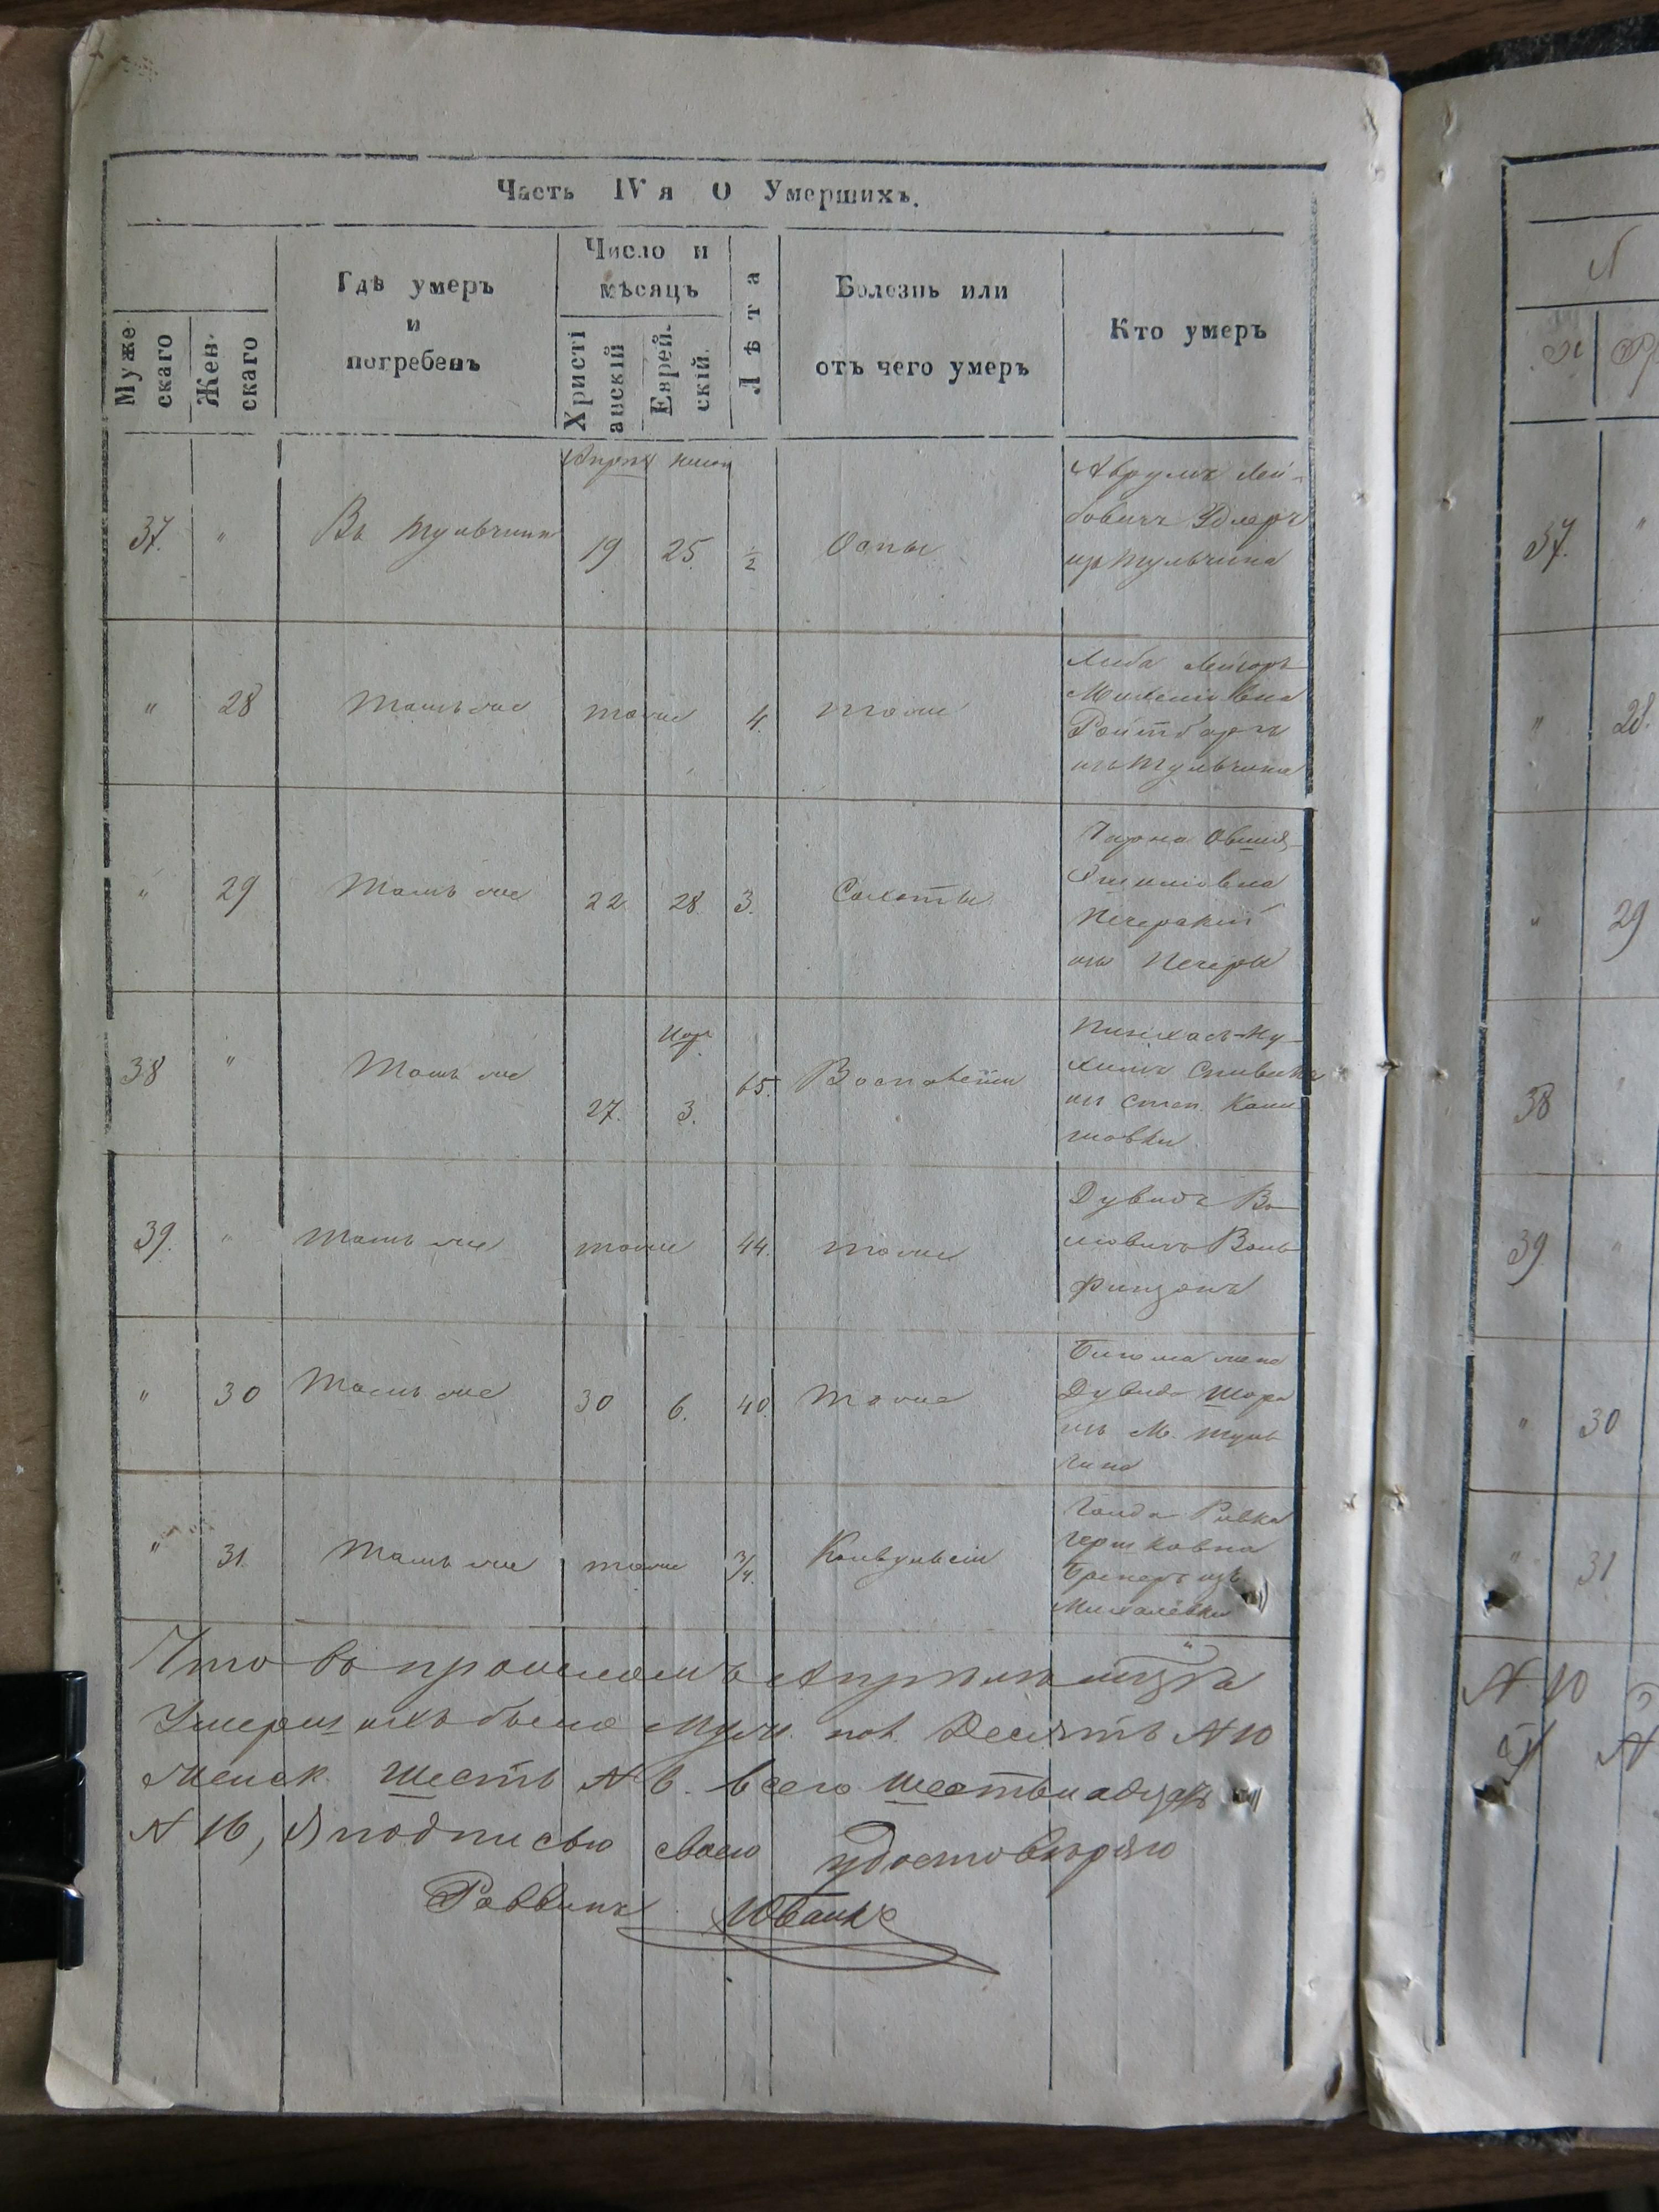 Часть IV я О Умершихъ.
Муже скаго
Жен- скаго
Гдѣ умеръ
и
погребенъ
Число и
мѣсяцъ
Христі анскій
Еврей- скій.
Лѣта
Болезнь или
отъ чего умеръ
Кто умеръ
Апрѣля
37. " Въ Тульчинѣ 19 25. 1/2 Оспы
Аврумъ Лей-
бовичъ Удлеръ
изъ Тульчина
" 28 Тамъ же тоже 4. тоже
Либа
Ройтбаргъ
изъ Тульчина
" 29 Тамъ же 22. 28. 3. Сухоты
Чарна Овшія
Печерскій
изъ Печеры
38 " Тамъ же 27. Іяр 3. 65. Воспаленія
Пинхасъ-Ну-
химъ Спивакъ
изъ
39. " Тамъ же тоже 44. тоже
Дувидъ Во-
льковичъ Воль-
финзонъ
" 30 Тамъ же 30 6. 40. тоже
жена
Дувида Шора
изъ М. Туль-
чина
" 31. Тамъ же тоже 3/4. Конвульсіи
Голда Ривка
Гершковна
изъ
Михалевки
Что въ прошломъ Апрѣлѣ мѣсяцѣ
Умершихъ было Муж. пол. Десять № 10
Женск. Шесть № 6. всего Шестьнадцать
№ 16, Я подписью своею удостовѣряю
Раввинъ
37. "
" 28.
" 29
38 "
39 "
" 30
" 31
№ 10